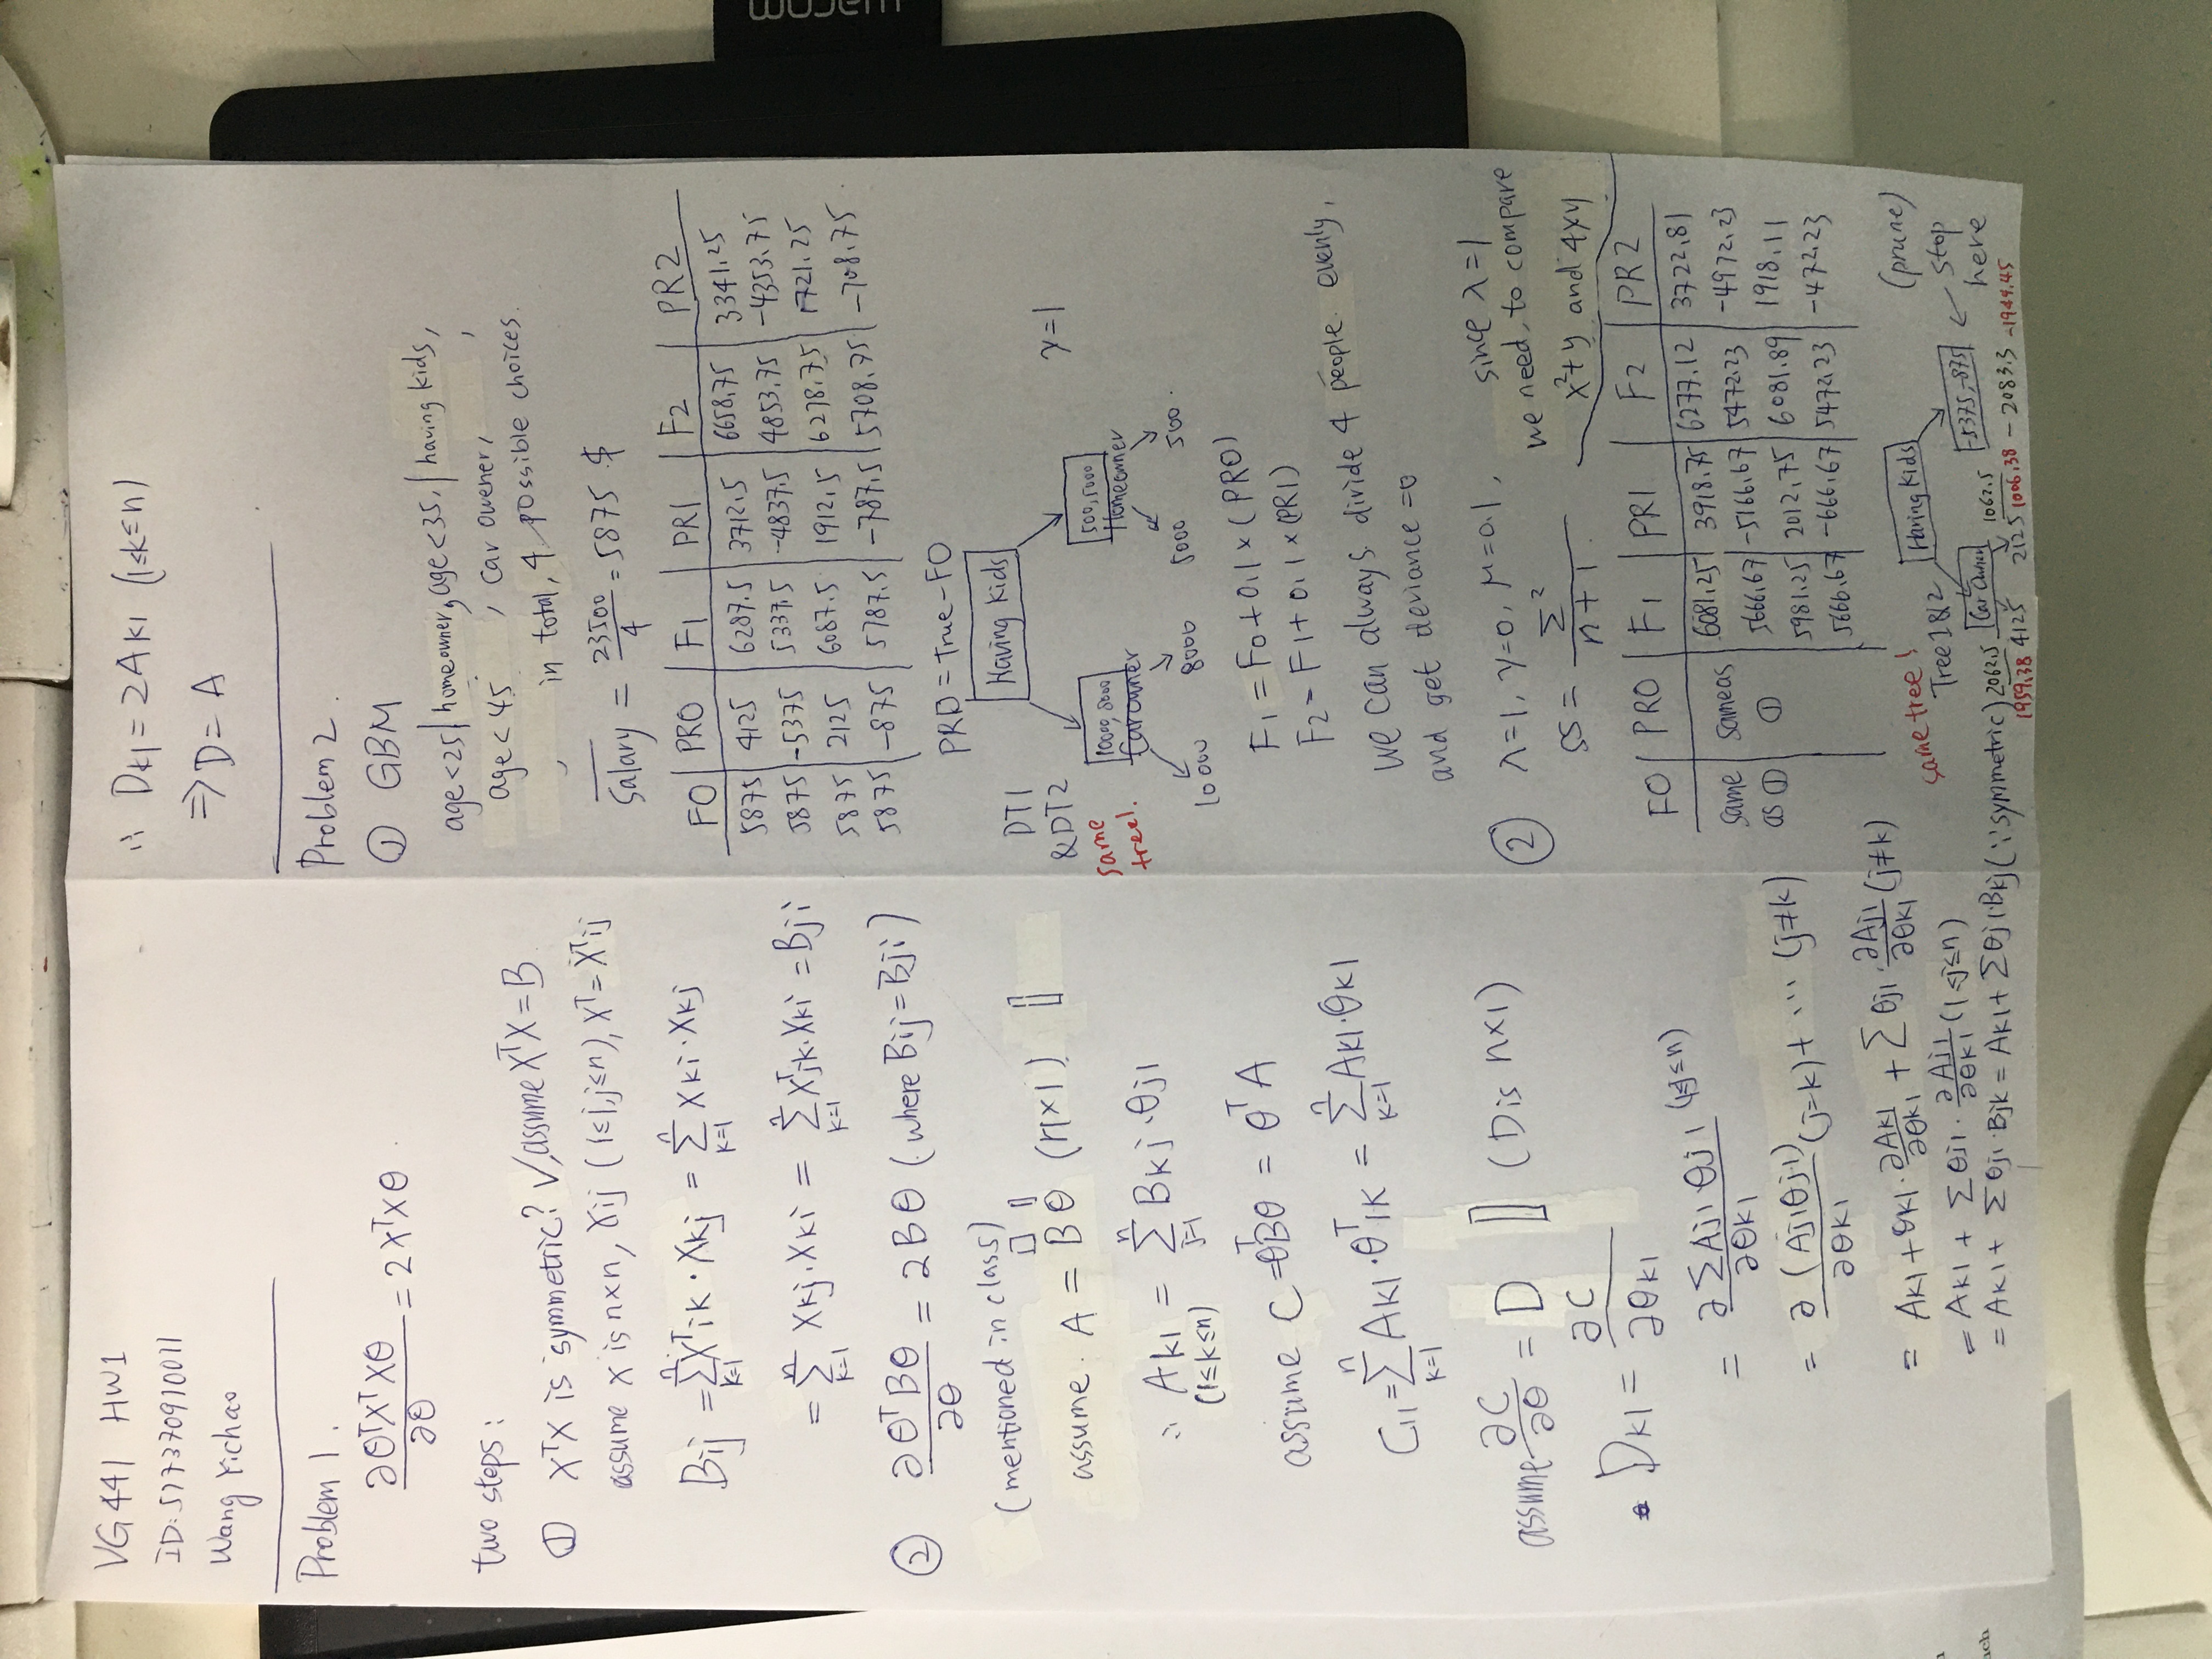 VG441 HW1
ID: 517370910011
Wang Yichao
Problem 1.
∂θᵀXᵀXθ / ∂θ = 2XᵀXθ
two steps:
① XᵀX is symmetric? ✓, assume XᵀX = B
assume X is n×n, Xij (1≤i,j≤n), Xᵀ = Xᵀij
Bij = Σ(k=1 to n) Xᵀik · Xkj = Σ(k=1 to n) Xki · Xkj
= Σ(k=1 to n) Xkj · Xki = Σ(k=1 to n) Xᵀjk · Xki = Bji
② ∂θᵀBθ / ∂θ = 2Bθ (where Bij = Bji)
(mentioned in class)
assume. A = Bθ (n×1)
∴ Ak1 = Σ(j=1 to n) Bkj · θj1
(1≤k≤n)
assume C = θᵀBθ = θᵀA
C11 = Σ(k=1 to n) Ak1 · θᵀ1k = Σ(k=1 to n) Ak1 · θk1
assume ∂C/∂θ = D (D is n×1)
Dk1 = ∂C / ∂θk1
= ∂ΣAj1θj1 / ∂θk1 (1≤j≤n)
= ∂(Aj1θj1) / ∂θk1 (j=k) + ··· (j≠k)
= Ak1 + θk1 · ∂Ak1/∂θk1 + Σθj1 · ∂Aj1/∂θk1 (j≠k)
= Ak1 + Σθj1 · ∂Aj1/∂θk1 (1≤j≤n)
= Ak1 + Σθj1·Bjk = Ak1 + Σθj1·Bkj (∵ symmetric)
∴ Dk1 = 2Ak1 (1≤k≤n)
⇒ D = A
Problem 2.
① GBM
age<25 | homeowner, age<35, | having kids,
age<45 , car owener,
in total, 4 possible choices.
Salary = 23500/4 = 5875 $
FO | PRO | F1 | PR1 | F2 | PR2
5875 | 4125 | 6287.5 | 3712.5 | 6658.75 | 3341.25
5875 | -5375 | 5337.5 | -4837.5 | 4853.75 | -4353.75
5875 | 2125 | 6087.5 | 1912.5 | 6278.75 | 1721.25
5875 | -875 | 5787.5 | -787.5 | 5708.75 | -708.75
PRO = True-FO
Having Kids
DT1
&DT2
same
tree!
γ=1
10000, 8000
Car owner
500, 5000
Homeowner
10000 8000 5000 500
F1 = F0 + 0.1 × (PRO)
F2 = F1 + 0.1 × (PR1)
we can always divide 4 people evenly,
and get deviance = 0
② λ=1, γ=0, μ=0.1,
SS = Σ² / n+1
since λ=1
we need to compare
x²+y and 4xy
FO | PRO | F1 | PR1 | F2 | PR2
same as ① | same as ① | 6081.25 | 3918.75 | 6277.12 | 3722.81
5666.67 | -5166.67 | 5472.23 | -4972.23
5981.25 | 2012.75 | 6081.89 | 1918.11
5666.67 | -666.67 | 5472.23 | -472.23
same tree!
Tree 1&2
Having Kids
Car Owner
-5375, -875
(prune)
stop
here
2062.5 1062.5
1959.38 4125 2125 1006.38 -2083.3 -1944.45
wacom